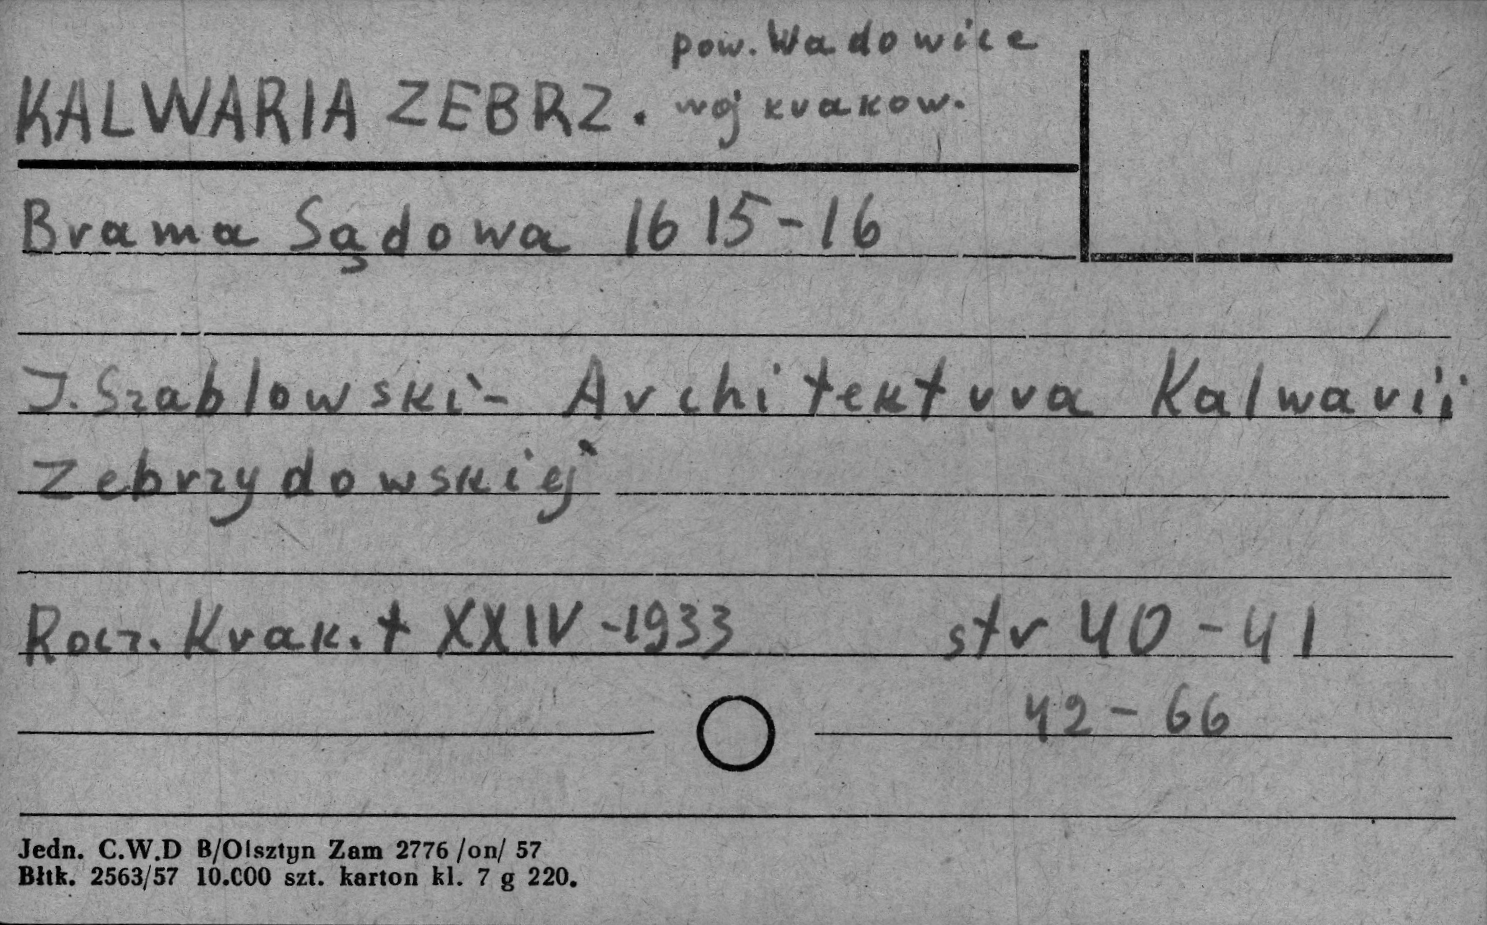 pow. Wadowice
KALWARIA ZEBRZ. woj krakow.
Brama Sądowa 1615-16
J. Szablowski - Architektura Kalwarii
Zebrzydowskiej
Rocz. Krak. t XXIV - 1933 str 40 - 41
42 - 66
Jedn. C.W.D B/Olsztyn Zam 2776 /on/ 57
Błtk. 2563/57 10.000 szt. karton kl. 7 g 220.